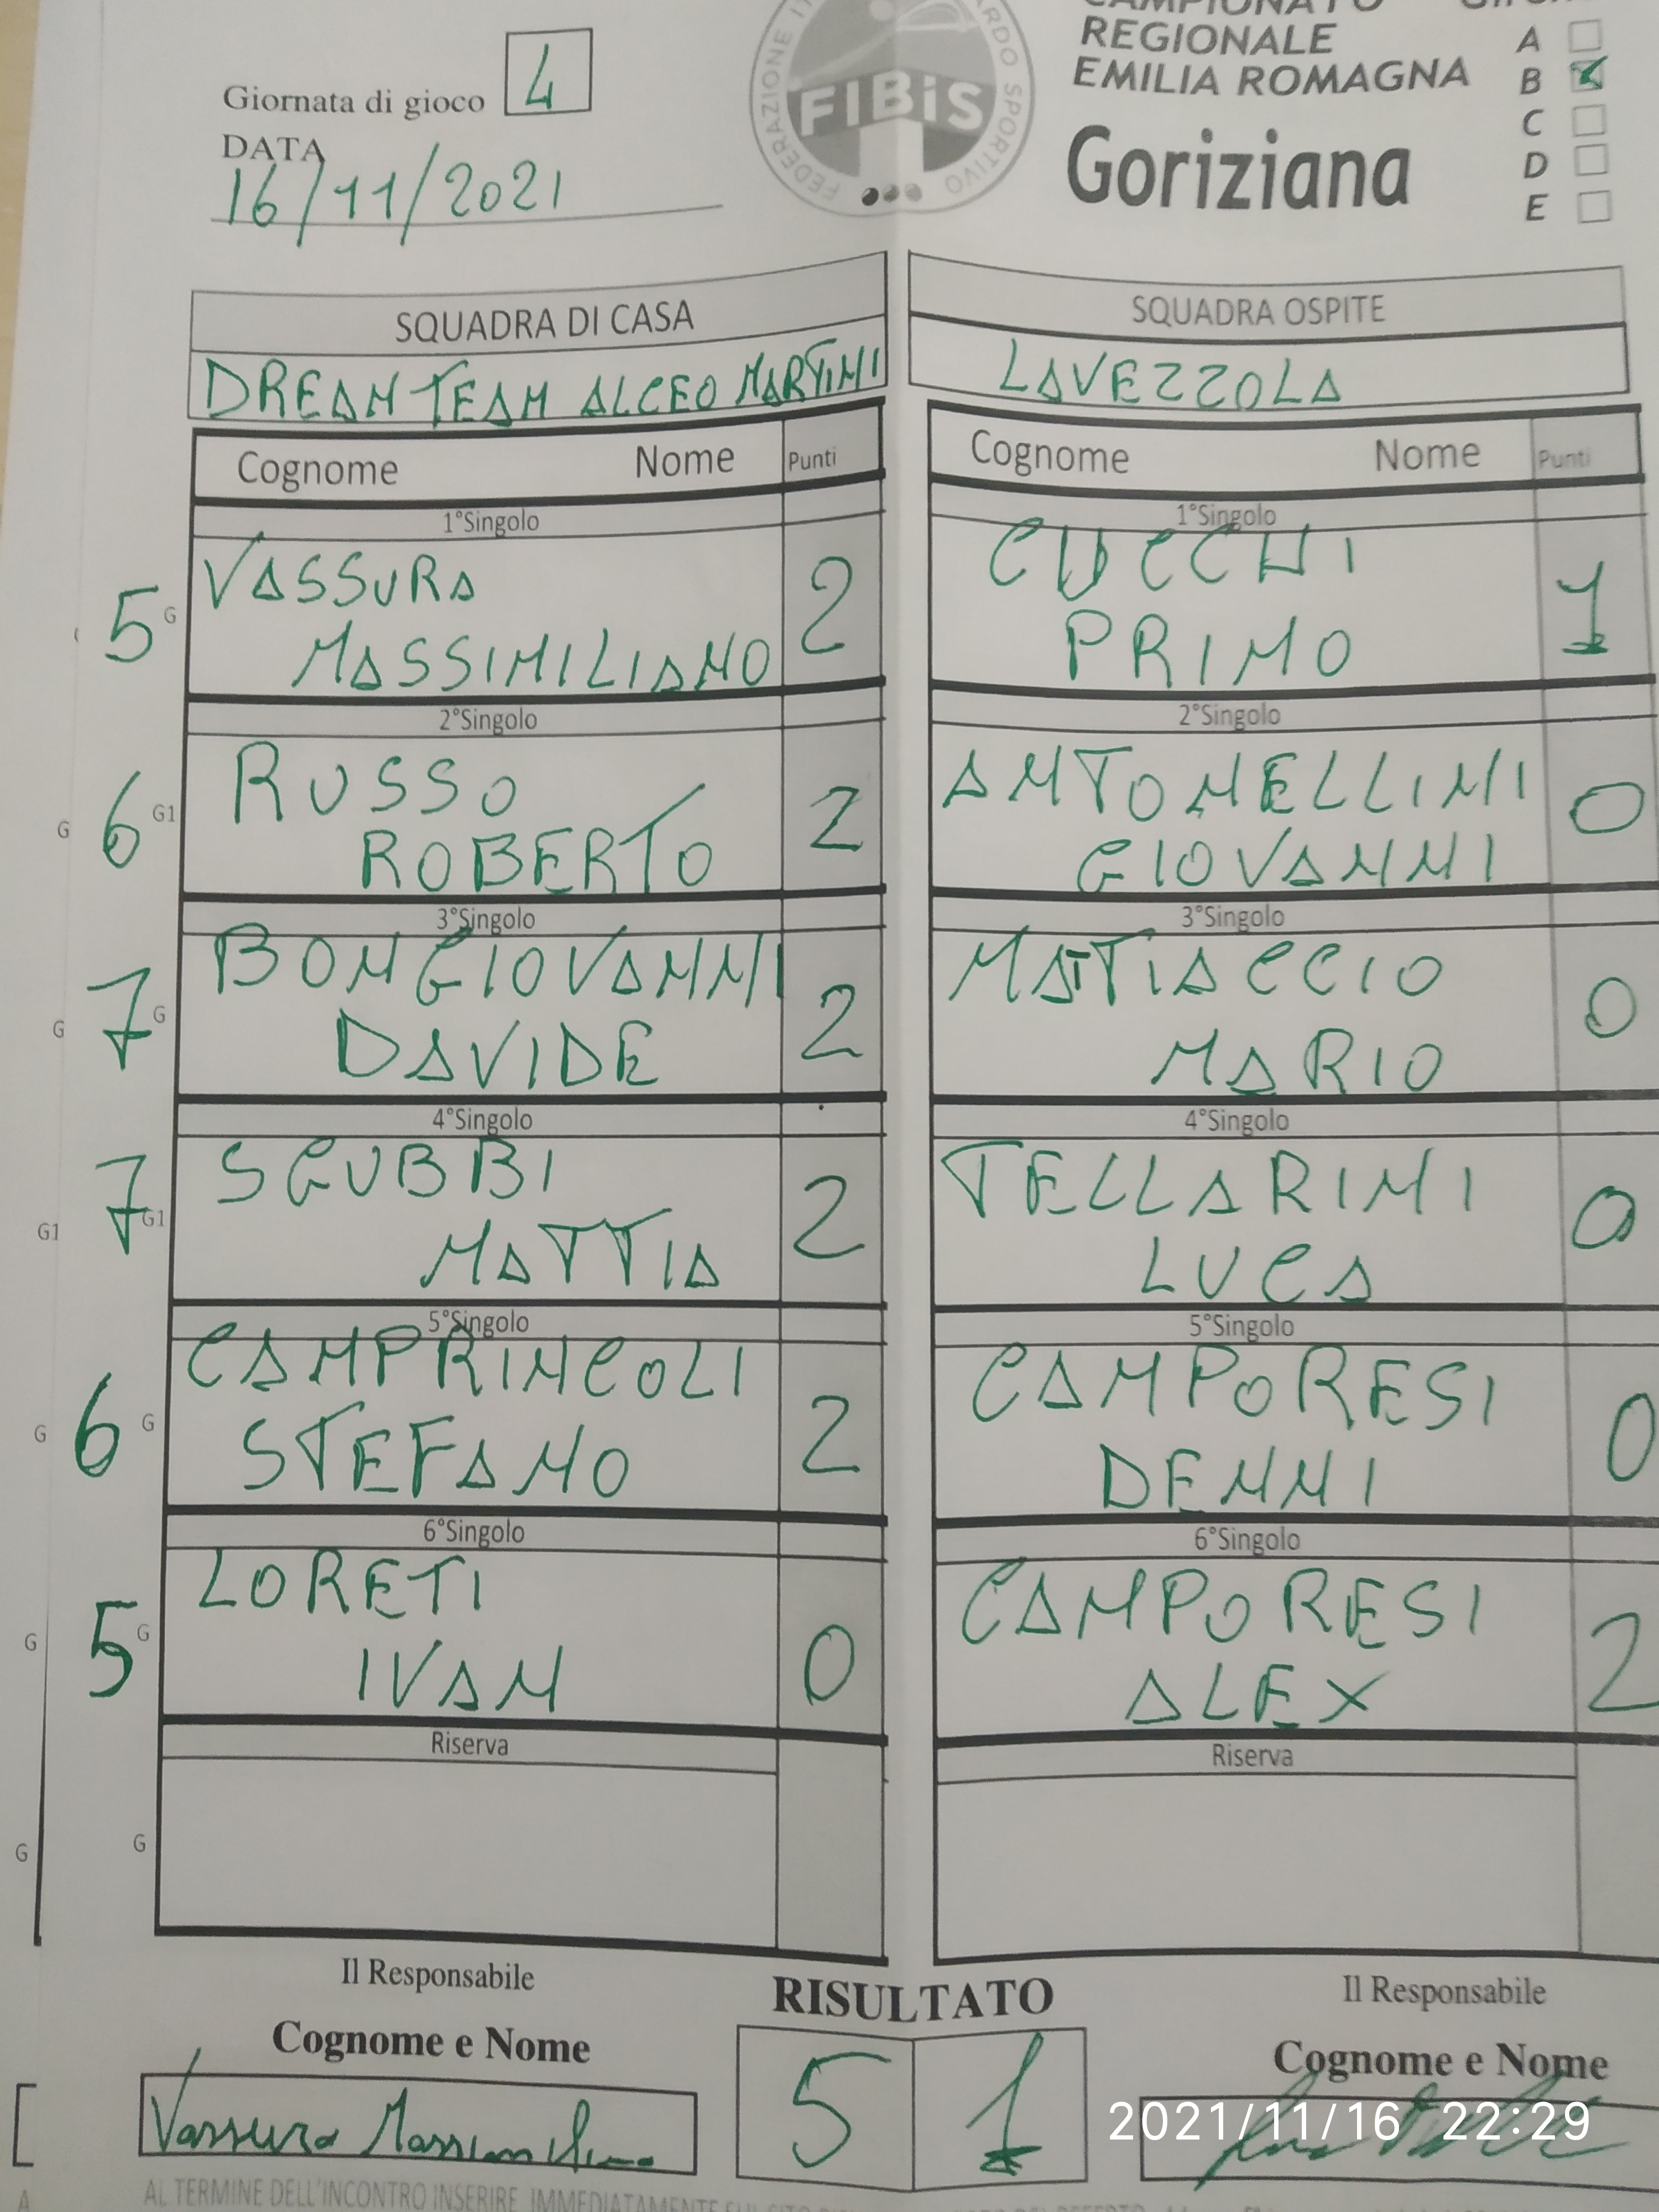 CAMPIONATO
REGIONALE
EMILIA ROMAGNA
Goriziana
A
B
C
D
E
Giornata di gioco 4
DATA
16/11/2021
FEDERAZIONE SPORTIVO
FIBiS
SQUADRA DI CASA
DREAM TEAM ALCEO MARTINI
Cognome Nome Punti
1°Singolo
5 G VASSURA
MASSIMILIANO 2
2°Singolo
G 6 G1 RUSSO
ROBERTO 2
3°Singolo
G 7 G BONGIOVANNI
DAVIDE 2
4°Singolo
G1 7 G1 SGUBBI
MATTIA 2
5°Singolo
G 6 G CAMPRINCOLI
STEFANO 2
6°Singolo
G 5 G LORETI
IVAN 0
Riserva
G G
SQUADRA OSPITE
LAVEZZOLA
Cognome Nome Punti
1°Singolo
CUCCHI
PRIMO 1
2°Singolo
ANTONELLINI
GIOVANNI 0
3°Singolo
MATTIACCIO
MARIO 0
4°Singolo
TELLARINI
LUCA 0
5°Singolo
CAMPORESI
DENNI 0
6°Singolo
CAMPORESI
ALEX 2
Riserva
Il Responsabile
Cognome e Nome
Vassura Massimiliano
RISULTATO
5 1
Il Responsabile
Cognome e Nome
2021/11/16 22:29
AL TERMINE DELL'INCONTRO INSERIRE IMMEDIATAMENTE